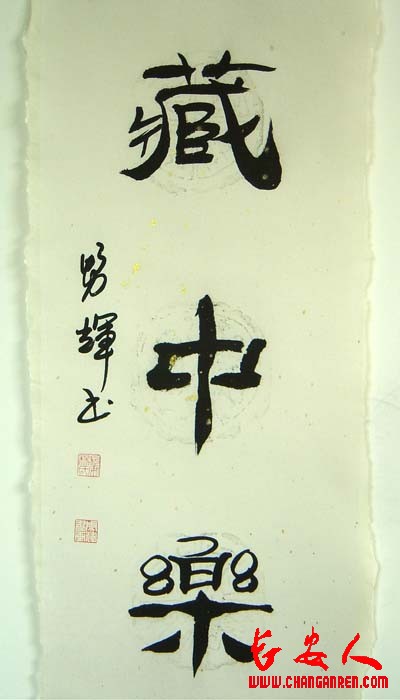 藏中樂
勇輝书
长安人
WWW.CHANGANREN.COM